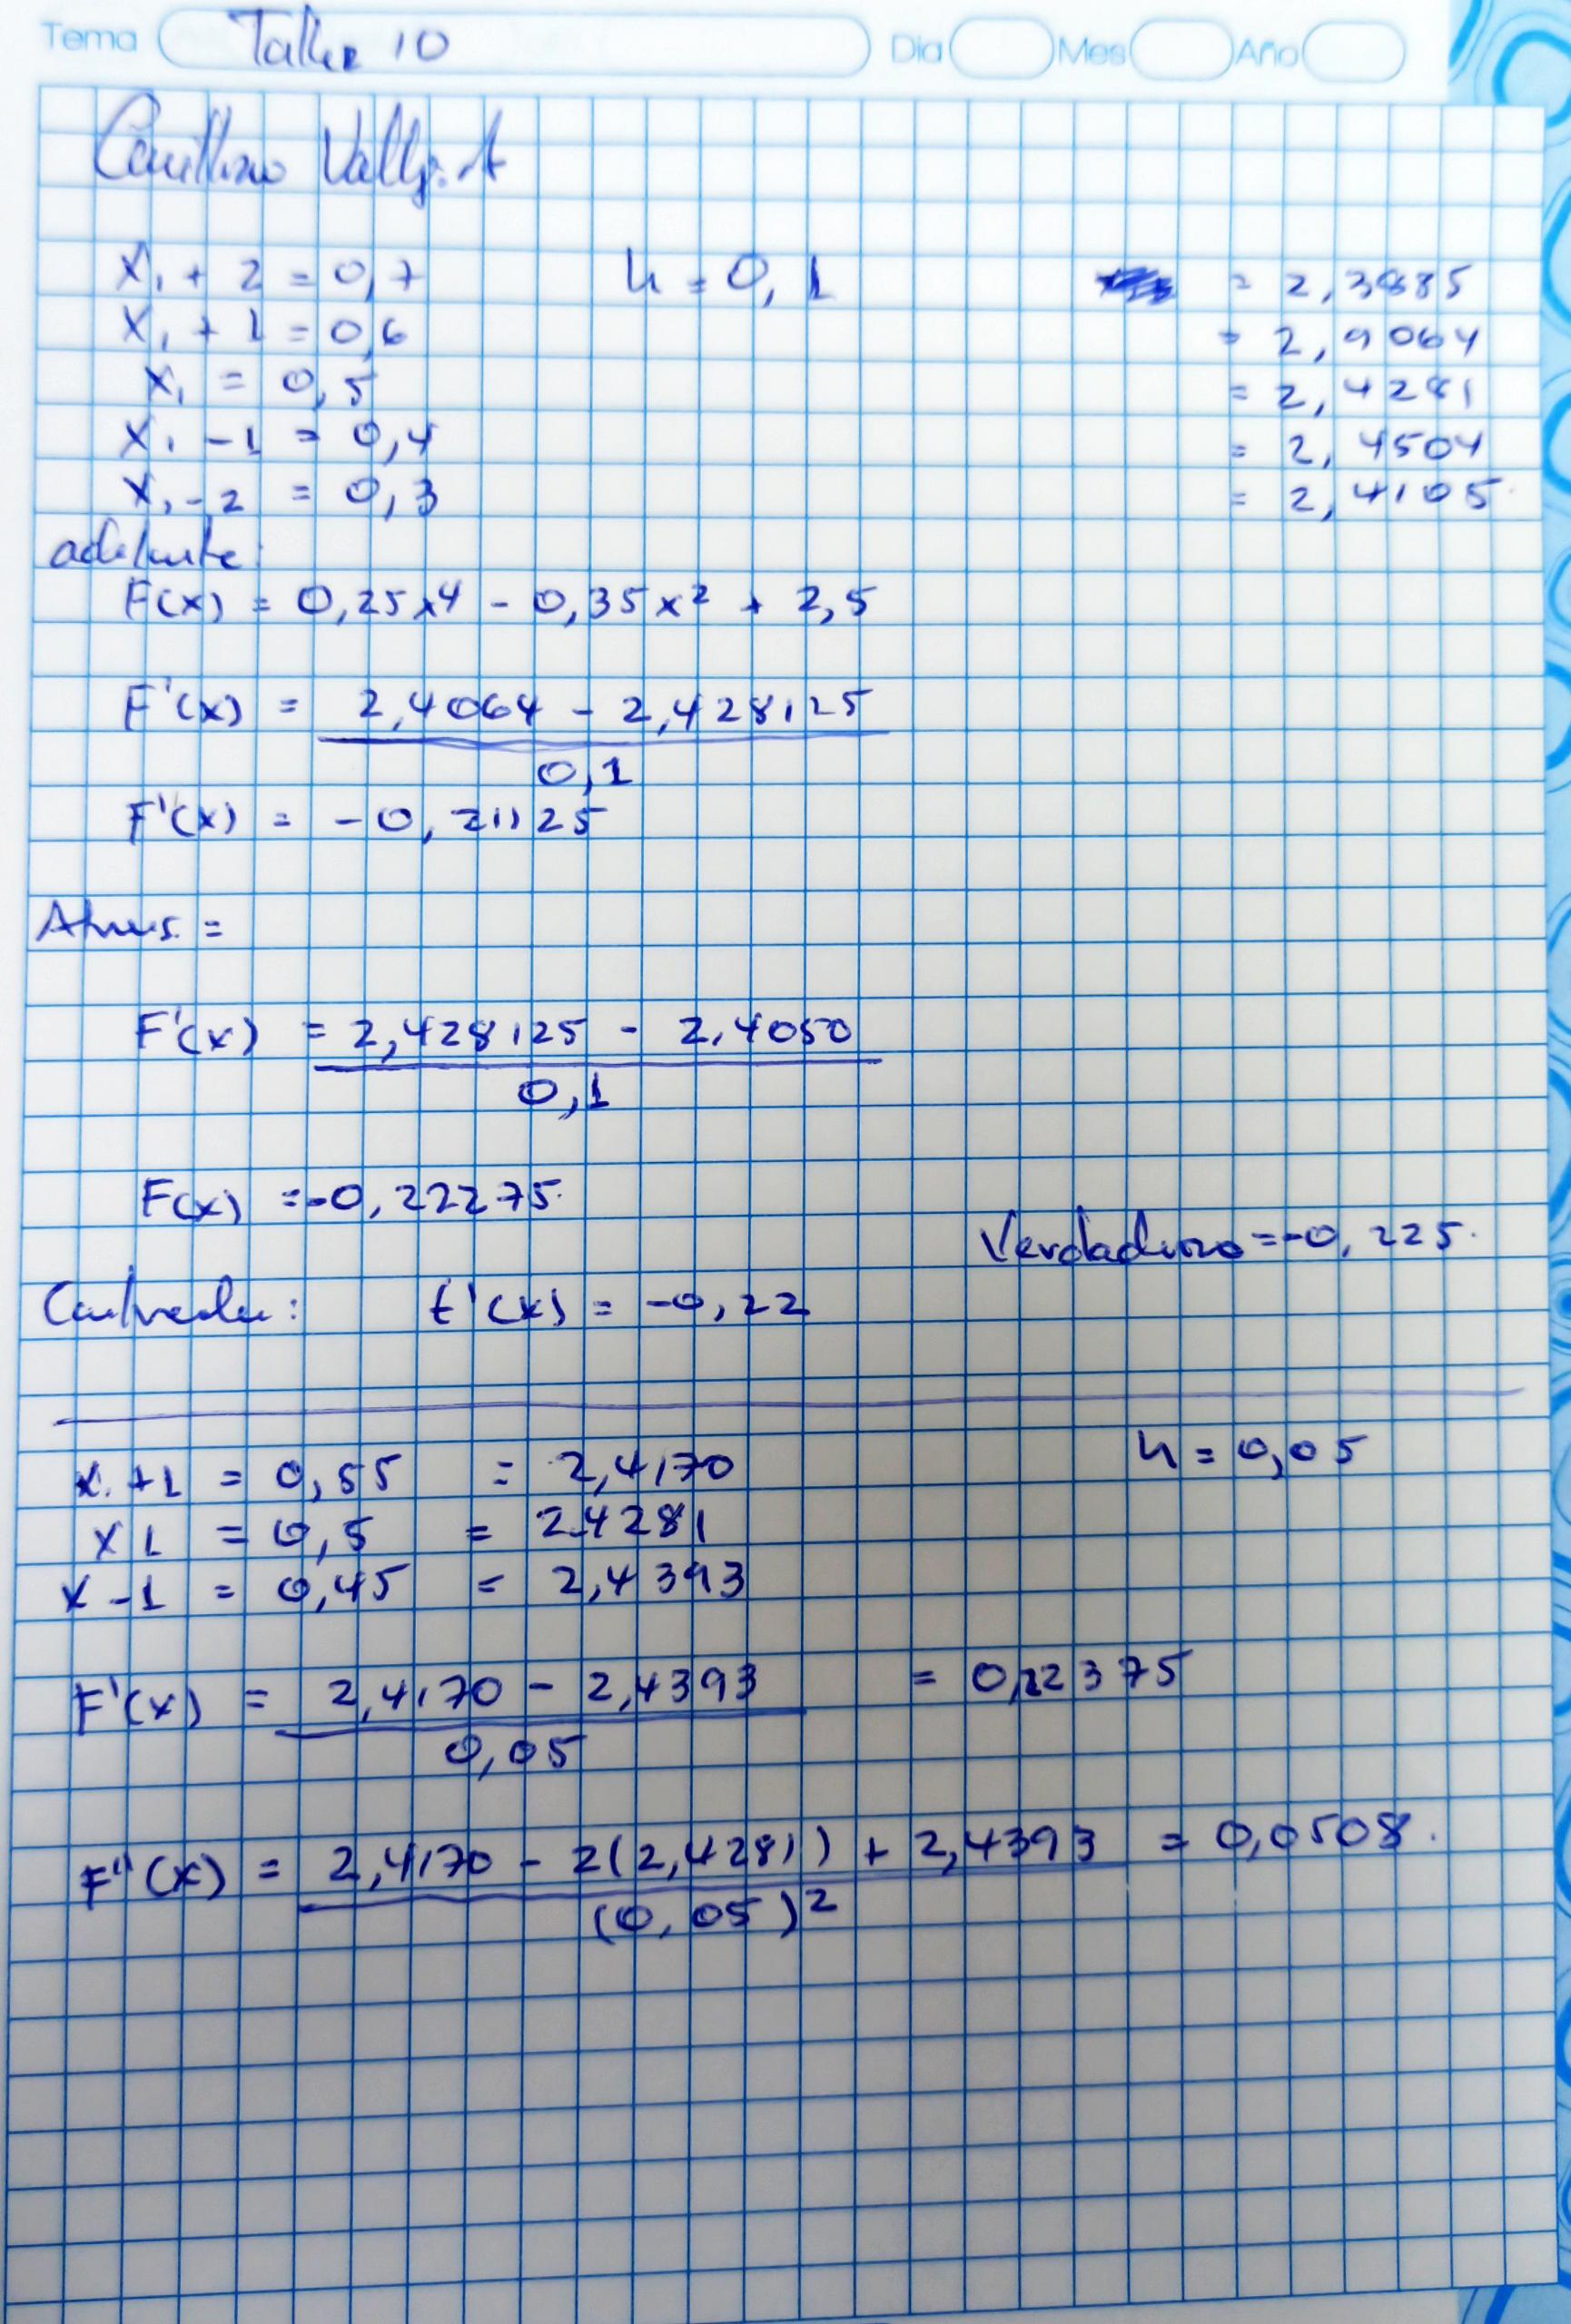 Tema Taller 10 Dia Mes Año
Camilo Vallejo A
X₁ + 2 = 0,7 h = 0,1 = 2,3885
X₁ + 1 = 0,6 = 2,9064
X₁ = 0,5 = 2,4281
X₁ - 1 = 0,4 = 2,4504
X₁ - 2 = 0,3 = 2,4105
adelante:
F(x) = 0,25x⁴ - 0,35x² + 2,5
F'(x) = 2,4064 - 2,428125
0,1
F'(x) = -0,21125
Atras =
F'(x) = 2,428125 - 2,4050
0,1
F(x) = -0,22275
Verdadero = -0,225
Centrada: f'(x) = -0,22
x. +1 = 0,55 = 2,4170 h = 0,05
x1 = 0,5 = 2.4281
x -1 = 0,45 = 2,4393
F'(x) = 2,4170 - 2,4393 = 0,22375
0,05
F''(x) = 2,4170 - 2(2,4281) + 2,4393 = 0,0508.
(0,05)²